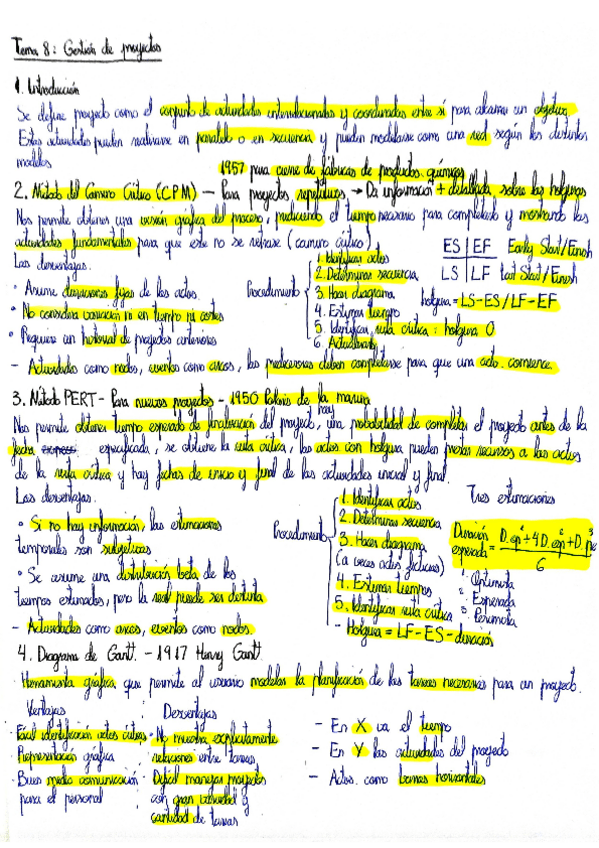 Tema 8: Gestión de proyectos
1. Introducción
Se define proyecto como el conjunto de actividades interrelacionadas y coordinadas entre sí para alcanzar un objetivo.
Estas actividades pueden realizarse en paralelo o en secuencia y pueden modelarse como una red según los distintos
modelos
1957 para cierre de fábricas de productos químicos
2. Método del Camino Crítico (CPM) — Para proyectos repetitivos → Da información + detallada sobre las holguras
Nos permite obtener una visión gráfica del proceso, prediciendo el tiempo necesario para completarlo y mostrando las
actividades fundamentales para que este no se retrase (camino crítico)
Las desventajas.
• Asume duraciones fijas de las actos.
• No considera variación ni en tiempo ni costes
• Requiere un historial de proyectos anteriores
Procedimiento
1. Identificar actos
2. Determinar secuencia
3. Hacer diagrama
4. Estimar tiempo
5. Identificar ruta crítica: holgura 0
6. Actualizarlo
ES | EF Early Start/Finish
LS | LF Last Start/Finish
holgura = LS-ES/LF-EF
- Actividades como nodos, eventos como arcos, las predecesoras deben completarse para que una acto. comience.
3. Método PERT - Para nuevos proyectos - 1950 Polaris de la marina
Nos permite obtener tiempo esperado de finalización del proyecto, hay una probabilidad de completar el proyecto antes de la
fecha especificada, se obtiene la ruta crítica, las actos con holgura pueden prestar recursos a las actos
de la ruta crítica y hay fechas de inicio y final de las actividades inicial y final.
Las desventajas.
• Si no hay información, las estimaciones
temporales son subjetivas
• Se asume una distribución beta de los
tiempos estimados, pero la real puede ser distinta
- Actividades como arcos, eventos como nodos.
Procedimiento
1. Identificar actos
2. Determinar secuencia
3. Hacer diagrama
(a veces actos ficticias)
4. Estimar tiempos
5. Identificar ruta crítica
- Holgura = LF-ES-duración
Tres estimaciones
Duración esperada = D. op¹ + 4 D. esp² + D. pe³ / 6
1. Optimista
2. Esperada
3. Pesimista
4. Diagrama de Gantt. - 1917 Henry Gantt.
Herramienta gráfica que permite al usuario modelar la planificación de las tareas necesarias para un proyecto.
Ventajas
· Fácil identificación actos críticas
· Representación gráfica
· Buen medio comunicación
para el personal
Desventajas
· No muestra explícitamente
relaciones entre tareas
· Difícil manejar proyectos
con gran cantidad de tareas
- En X va el tiempo
- En Y las actividades del proyecto
- Actos. como barras horizontales